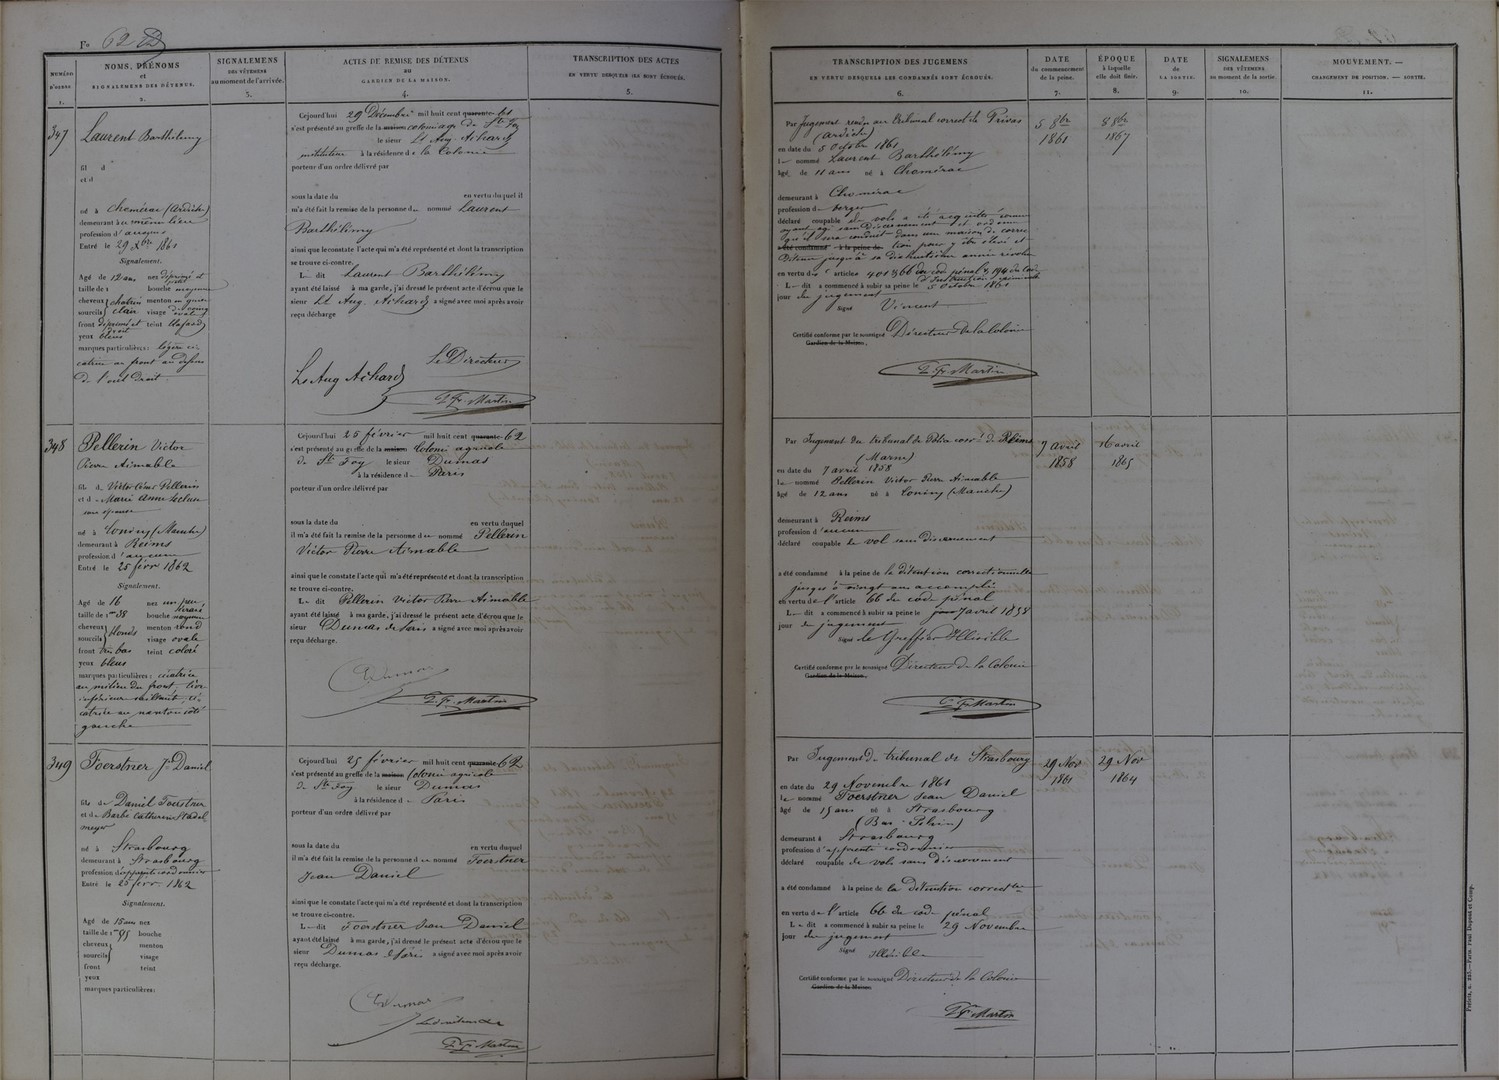 Fo 62
NUMÉRO D'ORDRE 1.
NOMS, PRÉNOMS et SIGNALEMENS DES DÉTENUS. 2.
SIGNALEMENS DES VÊTEMENS au moment de l'arrivée. 3.
ACTES DE REMISE DES DÉTENUS AU GARDIEN DE LA MAISON. 4.
TRANSCRIPTION DES ACTES EN VERTU DESQUELS ILS SONT ÉCROUÉS. 5.
TRANSCRIPTION DES JUGEMENS EN VERTU DESQUELS LES CONDAMNÉS SONT ÉCROUÉS. 6.
DATE du commencement de la peine. 7.
ÉPOQUE à laquelle elle doit finir. 8.
DATE de LA SORTIE. 9.
SIGNALEMENS DES VÊTEMENS au moment de la sortie. 10.
MOUVEMENT. — CHANGEMENT DE POSITION. — SORTIE. 11.
347
Laurent Barthélemy
fil d
et d
né à Chomérac (Ardèche)
demeurant à au même lieu
profession d' aucune
Entré le 29 Xbre 1861
Signalement.
Agé de 12 ans nez
taille de 1 bouche moyenne
cheveux chatain menton
sourcils clair visage
front teint blafard
yeux bleus
marques particulières: légère ci-
catrice au front au dessus
de l'œil droit.
Cejourd'hui 29 Décembre mil huit cent quarante
s'est présenté au greffe de la maison colonie agr. de Ste Foy
le sieur Lt Aug. Achard
instituteur à la résidence de la Colonie
porteur d'un ordre délivré par
sous la date du en vertu duquel il
m'a été fait la remise de la personne du nommé Laurent
Barthélemy
ainsi que le constate l'acte qui m'a été représenté et dont la transcription
se trouve ci-contre.
L dit Laurent Barthélémy
ayant été laissé à ma garde, j'ai dressé le présent acte d'écrou que le
sieur Lt Aug. Achard a signé avec moi après avoir
reçu décharge
Le Directeur
Ls Aug Achard
Martin
Par Jugement rendu au tribunal correct. de Privas
(Ardèche)
en date du 5 Octobre 1861
le nommé Laurent Barthélémy
âgé de 11 ans né à Chomérac
demeurant à Chomérac
profession de berger
déclaré coupable de vols a été acquitté comme
ayant agi sans discernement et ordonne
qu'il sera conduit dans une maison de correc
a été condamné à la peine de tion pour y être élevé et
détenu jusqu'à sa dix huitième année révolue
en vertu des articles 401 & 66 du cod pénal & 194 du Code
d'instruction criminelle
L dit a commencé à subir sa peine le 5 Octobre 1861
jour du jugement
Signé Vincent
Certifié conforme par le soussigné Directeur de la Colonie
Gardien de la Maison.
Martin
5 8bre
1861
8 8bre
1867
348
Pellerin Victor
Pierre Aimable
fils de Victor César Pellerin
et de Marie Anne
son épouse
né à Coniny (Manche)
demeurant à Reims
profession d' aucune
Entré le 25 févr 1862
Signalement.
Agé de 16 nez un peu
taille de 1m 38 bouche moyenne
cheveux blonds menton rond
sourcils visage ovale
front très bas teint coloré
yeux bleus
marques particulières: cicatrice
au milieu du front, lèvre
inférieure saillante, ci-
catrice au menton côté
gauche
Cejourd'hui 25 février mil huit cent quarante 62
s'est présenté au greffe de la maison Colonie agricole
de Ste Foy le sieur Dumas
à la résidence de Paris
porteur d'un ordre délivré par
sous la date du en vertu duquel
il m'a été fait la remise de la personne du nommé Pellerin
Victor Pierre Aimable
ainsi que le constate l'acte qui m'a été représenté et dont la transcription
se trouve ci-contre.
Le dit Pellerin Victor Pierre Aimable
ayant été laissé à ma garde, j'ai dressé le présent acte d'écrou que le
sieur Dumas de Paris a signé avec moi après avoir
reçu décharge.
Dumas
Martin
Par Jugement du tribunal de Police corr. de Reims
(Marne)
en date du 7 avril 1858
le nommé Pellerin Victor Pierre Aimable
âgé de 12 ans né à Coniny (Manche)
demeurant à Reims
profession d'aucune
déclaré coupable de vol sans discernement
a été condamné à la peine de la détention correctionnelle
jusqu'à vingt ans accomplis
en vertu de l'article 66 du code pénal
L dit a commencé à subir sa peine le 7 avril 1858
jour du jugement
Signé le Greffier Illisible
Certifié conforme par le soussigné Directeur de la Colonie
Gardien de la Maison.
Martin
7 avril
1858
16 avril
1865
349
Foerstner Jn Daniel
fils de Daniel Foerstner
et de Barbe Catherine Stadel
meyer
né à Strasbourg
demeurant à Strasbourg
profession d'apprenti cordonnier
Entré le 25 févr. 1862
Signalement.
Agé de 15 ans nez
taille de 1m 95 bouche
cheveux menton
sourcils visage
front teint
yeux
marques particulières:
Cejourd'hui 25 février mil huit cent quarante 62
s'est présenté au greffe de la maison Colonie agricole
de Ste Foy le sieur Dumas
à la résidence de Paris
porteur d'un ordre délivré par
sous la date du en vertu duquel
il m'a été fait la remise de la personne du nommé Foerstner
Jean Daniel
ainsi que le constate l'acte qui m'a été représenté et dont la transcription
se trouve ci-contre.
Le dit Foerstner Jean Daniel
ayant été laissé à ma garde, j'ai dressé le présent acte d'écrou que le
sieur Dumas de Paris a signé avec moi après avoir
reçu décharge.
Dumas
Martin
Par Jugement du tribunal de Strasbourg
en date du 29 Novembre 1861
le nommé Foerstner Jean Daniel
âgé de 15 ans né à Strasbourg
(Bas-Rhin)
demeurant à Strasbourg
profession d'apprenti cordonnier
déclaré coupable de vols sans discernement
a été condamné à la peine de la détention correctlle
en vertu de l'article 66 du code pénal
L dit a commencé à subir sa peine le 29 Novembre
jour du jugement
Signé Illisible
Certifié conforme par le soussigné Directeur de la Colonie
Gardien de la Maison.
Martin
29 Nov
1861
29 Nov
1864